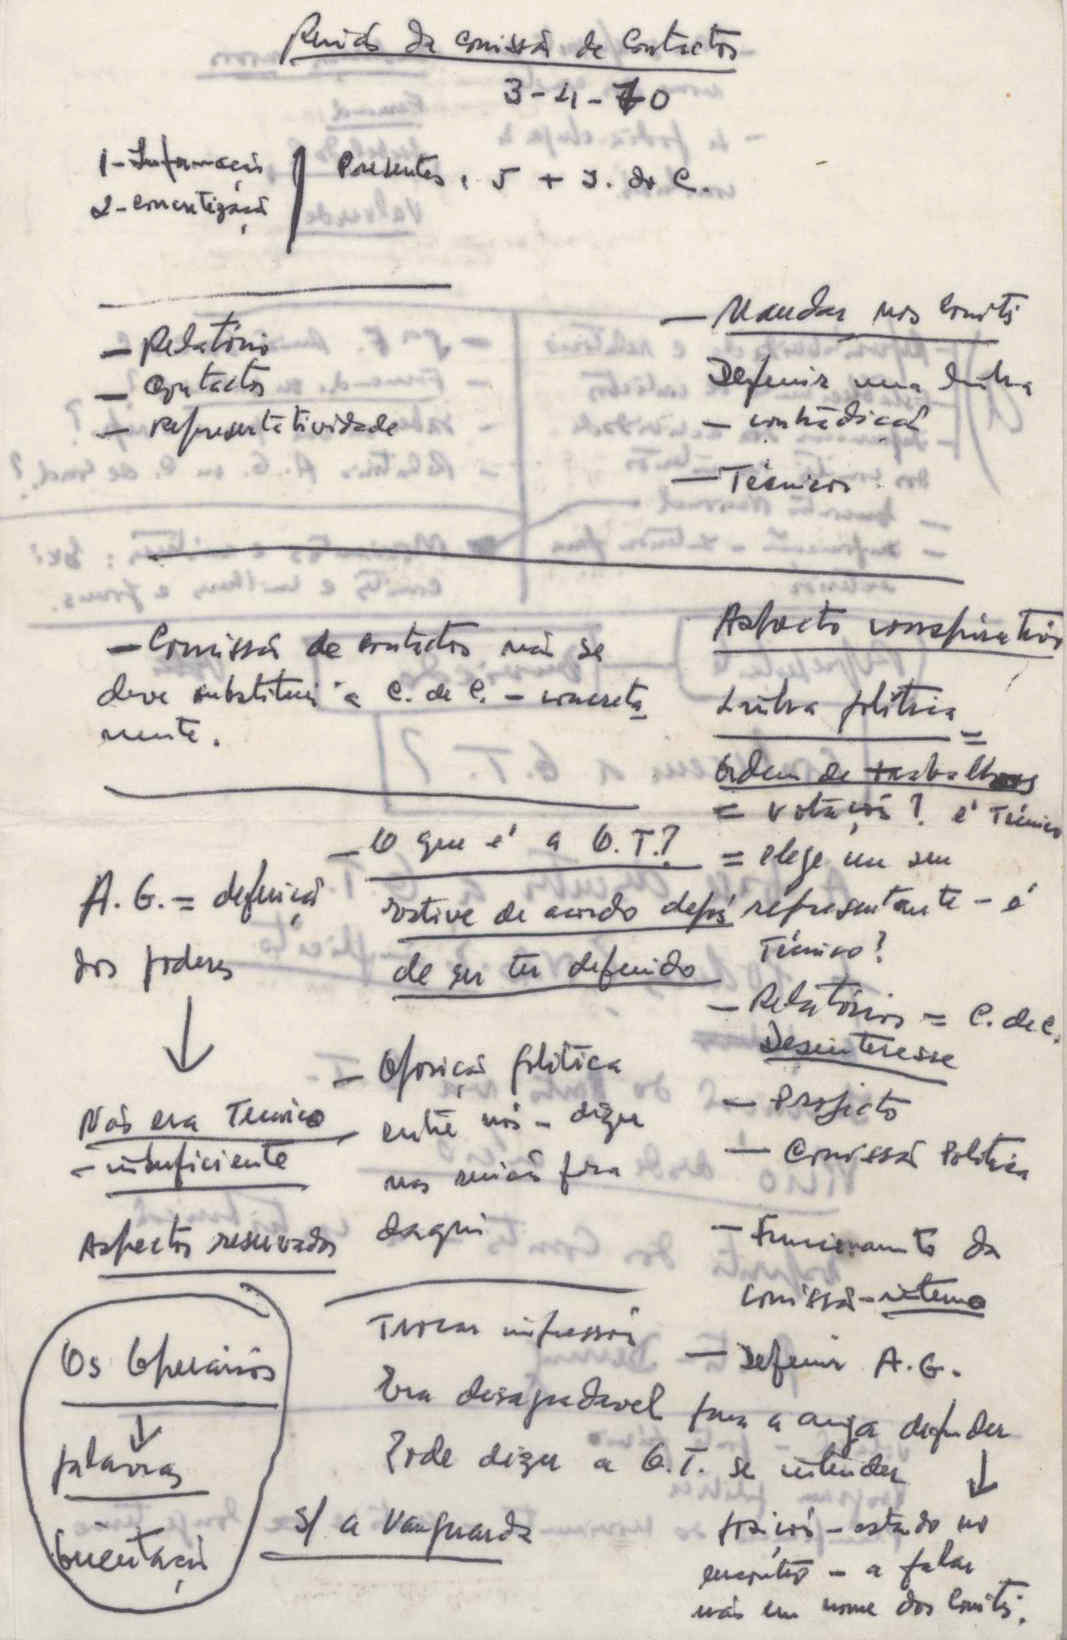 Reunião da Comissão de Contactos
3-4-70
1-Informação
2-Concretização
Presentes, 5 + J. do C.
- Relatório
- Contactos
- representatividade
- Mandar nos Comités
Definir uma linha
- contradição
- Técnicos
- Comissão de contactos não se
deve substituir a C. de C. - concreta
mente.
Aspecto conspirativo
Linha política =
ordem de trabalhos
= votação? é Técnico
= elege um seu
representante - é
Técnico?
- Relatórios = C. de C.
Desinteresse
- Projecto
- Comissão Política
- Funcionamento da
comissão - interno
- Definir A.G.
A.G. = definição
dos poderes
Não era Técnico
- insuficiente
Aspectos reservados
Os Operários
palavras
Orientação
- O que é a O.T.?
Estive de acordo depois
de ser ter definido
- Oposição política
entre nós - dizer
nas reunião fora
daqui
Trocar impressões
Era desagradável para a amiga defender
Pode dizer a O.T. se entender
S/ a Vanguarda
posição - estado no
encontro - a falar
não em nome dos Comités.